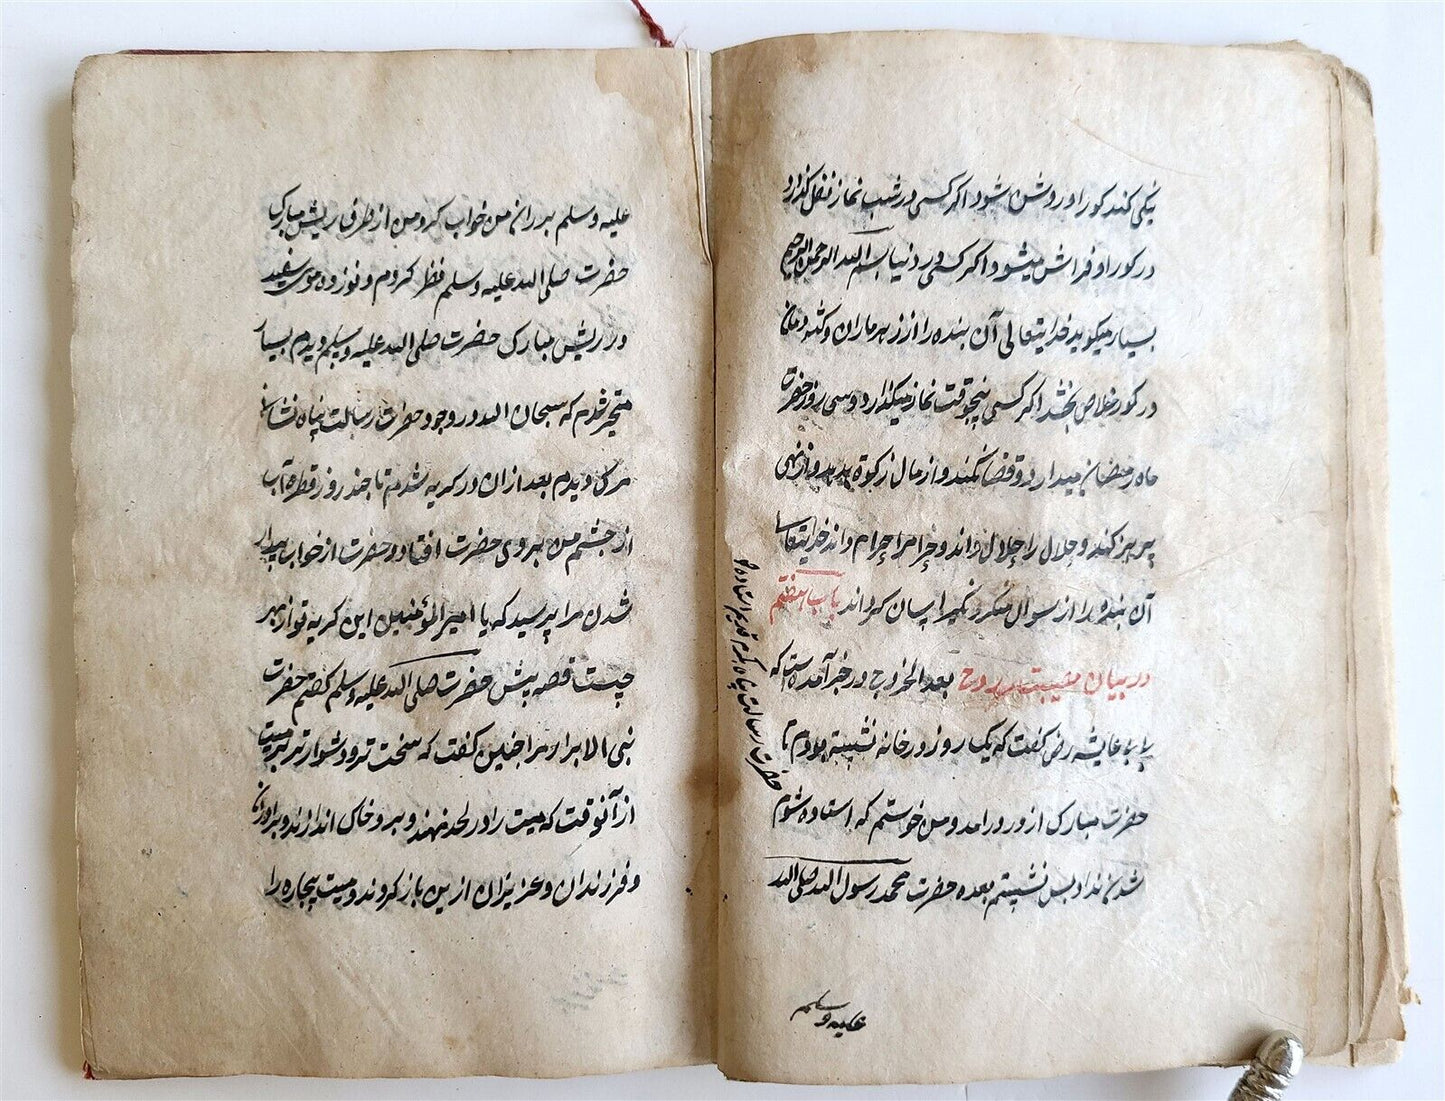 نیکی کند کور او روشن شود اکر کسی در شب نماز نفل کذارد
در کور او فراش میشود اکر کسی در دنیا بسم الله الرحمن الرحیم
بسیار میکوید خدایتعالی آن بنده را از زهر ماران و کژدمان
در کور خلاص بخشد اکر کسی پنجوقت نماز میکذارد و سی روز
ماه رمضان میدارد و قضا نکند و از مال زکوة بدهد و از نهی
پرهیز کند و حلال را حلال داند و حرام را حرام داند خدایتعالی
آن بنده را از سوال منکر و نکیر آسان کرداند باب هفتم
در بیان مصیبت روح بعد الخروج در خبر آمده است که
بی بی عایشه رض کفت که یک روز در خانه نشسته بودم تا
حضرت مبارک از در درامد و من خواستم که استاده شوم
شدن نداد پس نشستم بعده حضرت محمد رسول الله صلی الله
علیه وسلم
حضرت رسالت پناه
علیه وسلم بر ران من خواب کرد من از طرف ریش مبارک
حضرت صلی الله علیه وسلم نظر کردم و نوزده موی سفید
در ریش مبارک حضرت صلی الله علیه وسلم دیدم بسیار
متحیر شدم که سبحان الله در وجود حضرت رسالت پناه نشان
مرک دیدم بعد ازان در کریه شدم تا چند روز قطره آب
از چشم من بروی حضرت افتاد و حضرت از خواب بیدار
شدن مرا پرسید که یا امیر المؤمنین این کریه تو از بهر
چیست قصه پیش حضرت صلی الله علیه وسلم کفتم حضرت
نبی الابرار مرا چنین کفت که سخت تر و دشوار تر بر میت
از آنوقت که میت را در لحد نهند و برو خاک اندازند و برادران
و فرزندان و عزیزان ازین باز کردند و میت بیچاره را